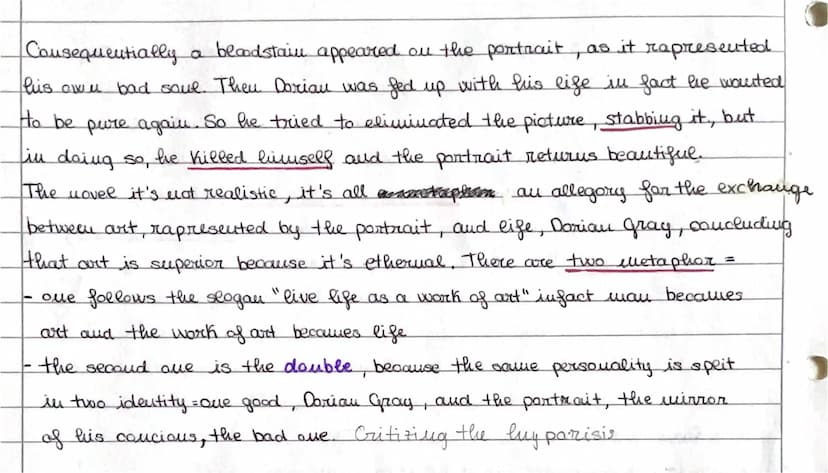 Consequentially a bloodstain appeared on the portrait, as it rapresented
his own bad soul. Then Dorian was fed up with his life in fact he wanted
to be pure again. So he tried to eliminated the picture, stabbing it, but
in doing so, he killed himself and the portrait returns beautiful.
The novel it's not realistic, it's all an allegory for the exchange
between art, rapresented by the portrait, and life, Dorian Gray, concluding
that art is superior because it's etherual. There are two metaphor =
- one follows the slogan "live life as a work of art" infact man becames
art and the work of art becames life
- the second one is the double, because the same personality is split
in two identity = one good, Dorian Gray, and the portrait, the mirror
of his concious, the bad one. Critizing the hyporisis